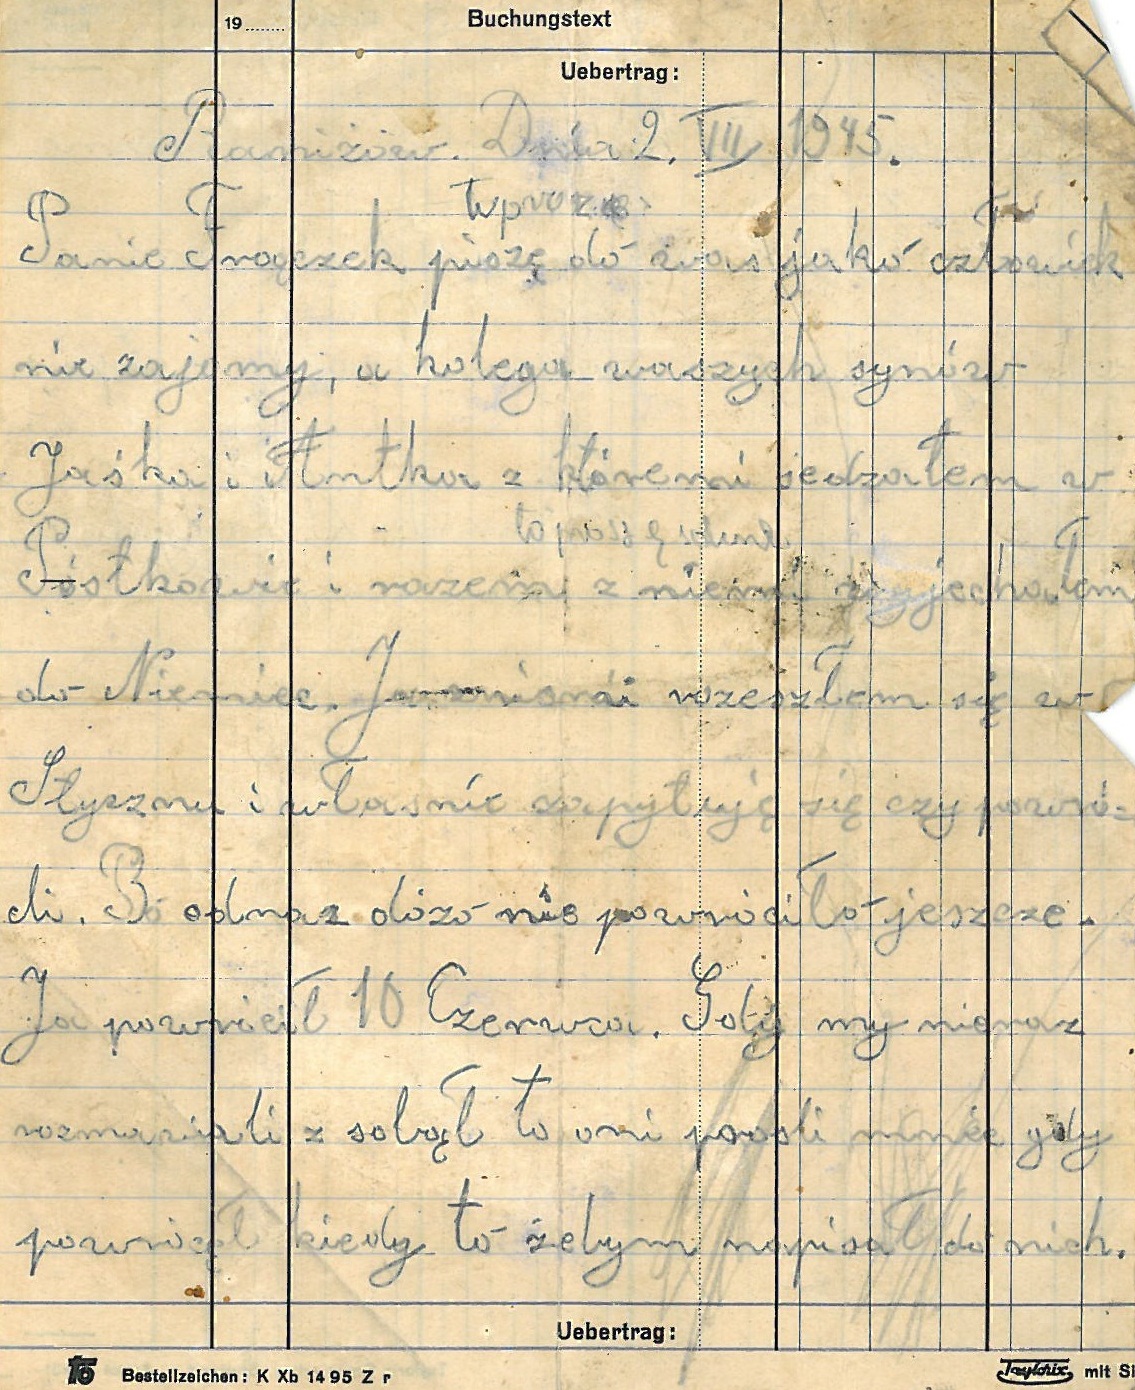 19........ Buchungstext
Uebertrag:
Raniżów. Dnia 2. VIII 1945.
Panie Frączek piszę dó was jakó człowiek
nie zajomy, a kolega waszych synów
Jaśka i Antka z któremi sedzałem w
to proszę
Póstkowie i razem z niemi wyjechałem
do Niemiec. Ja znionśi rozeszłem się w
Stycznu i własnie zapytuję się czy powró=
cili. Bó odnas dózó nie powróciło jeszcze.
Ja powrócił 10 Czerwca. Gdy my nieraz
rozmawiali z sobął to oni prosili mnie gdy
powrócęł kiedy tó żebym napisał do nich.
Uebertrag:
Bestellzeichen: K Xb 1495 Z r
Taylorix mit Si